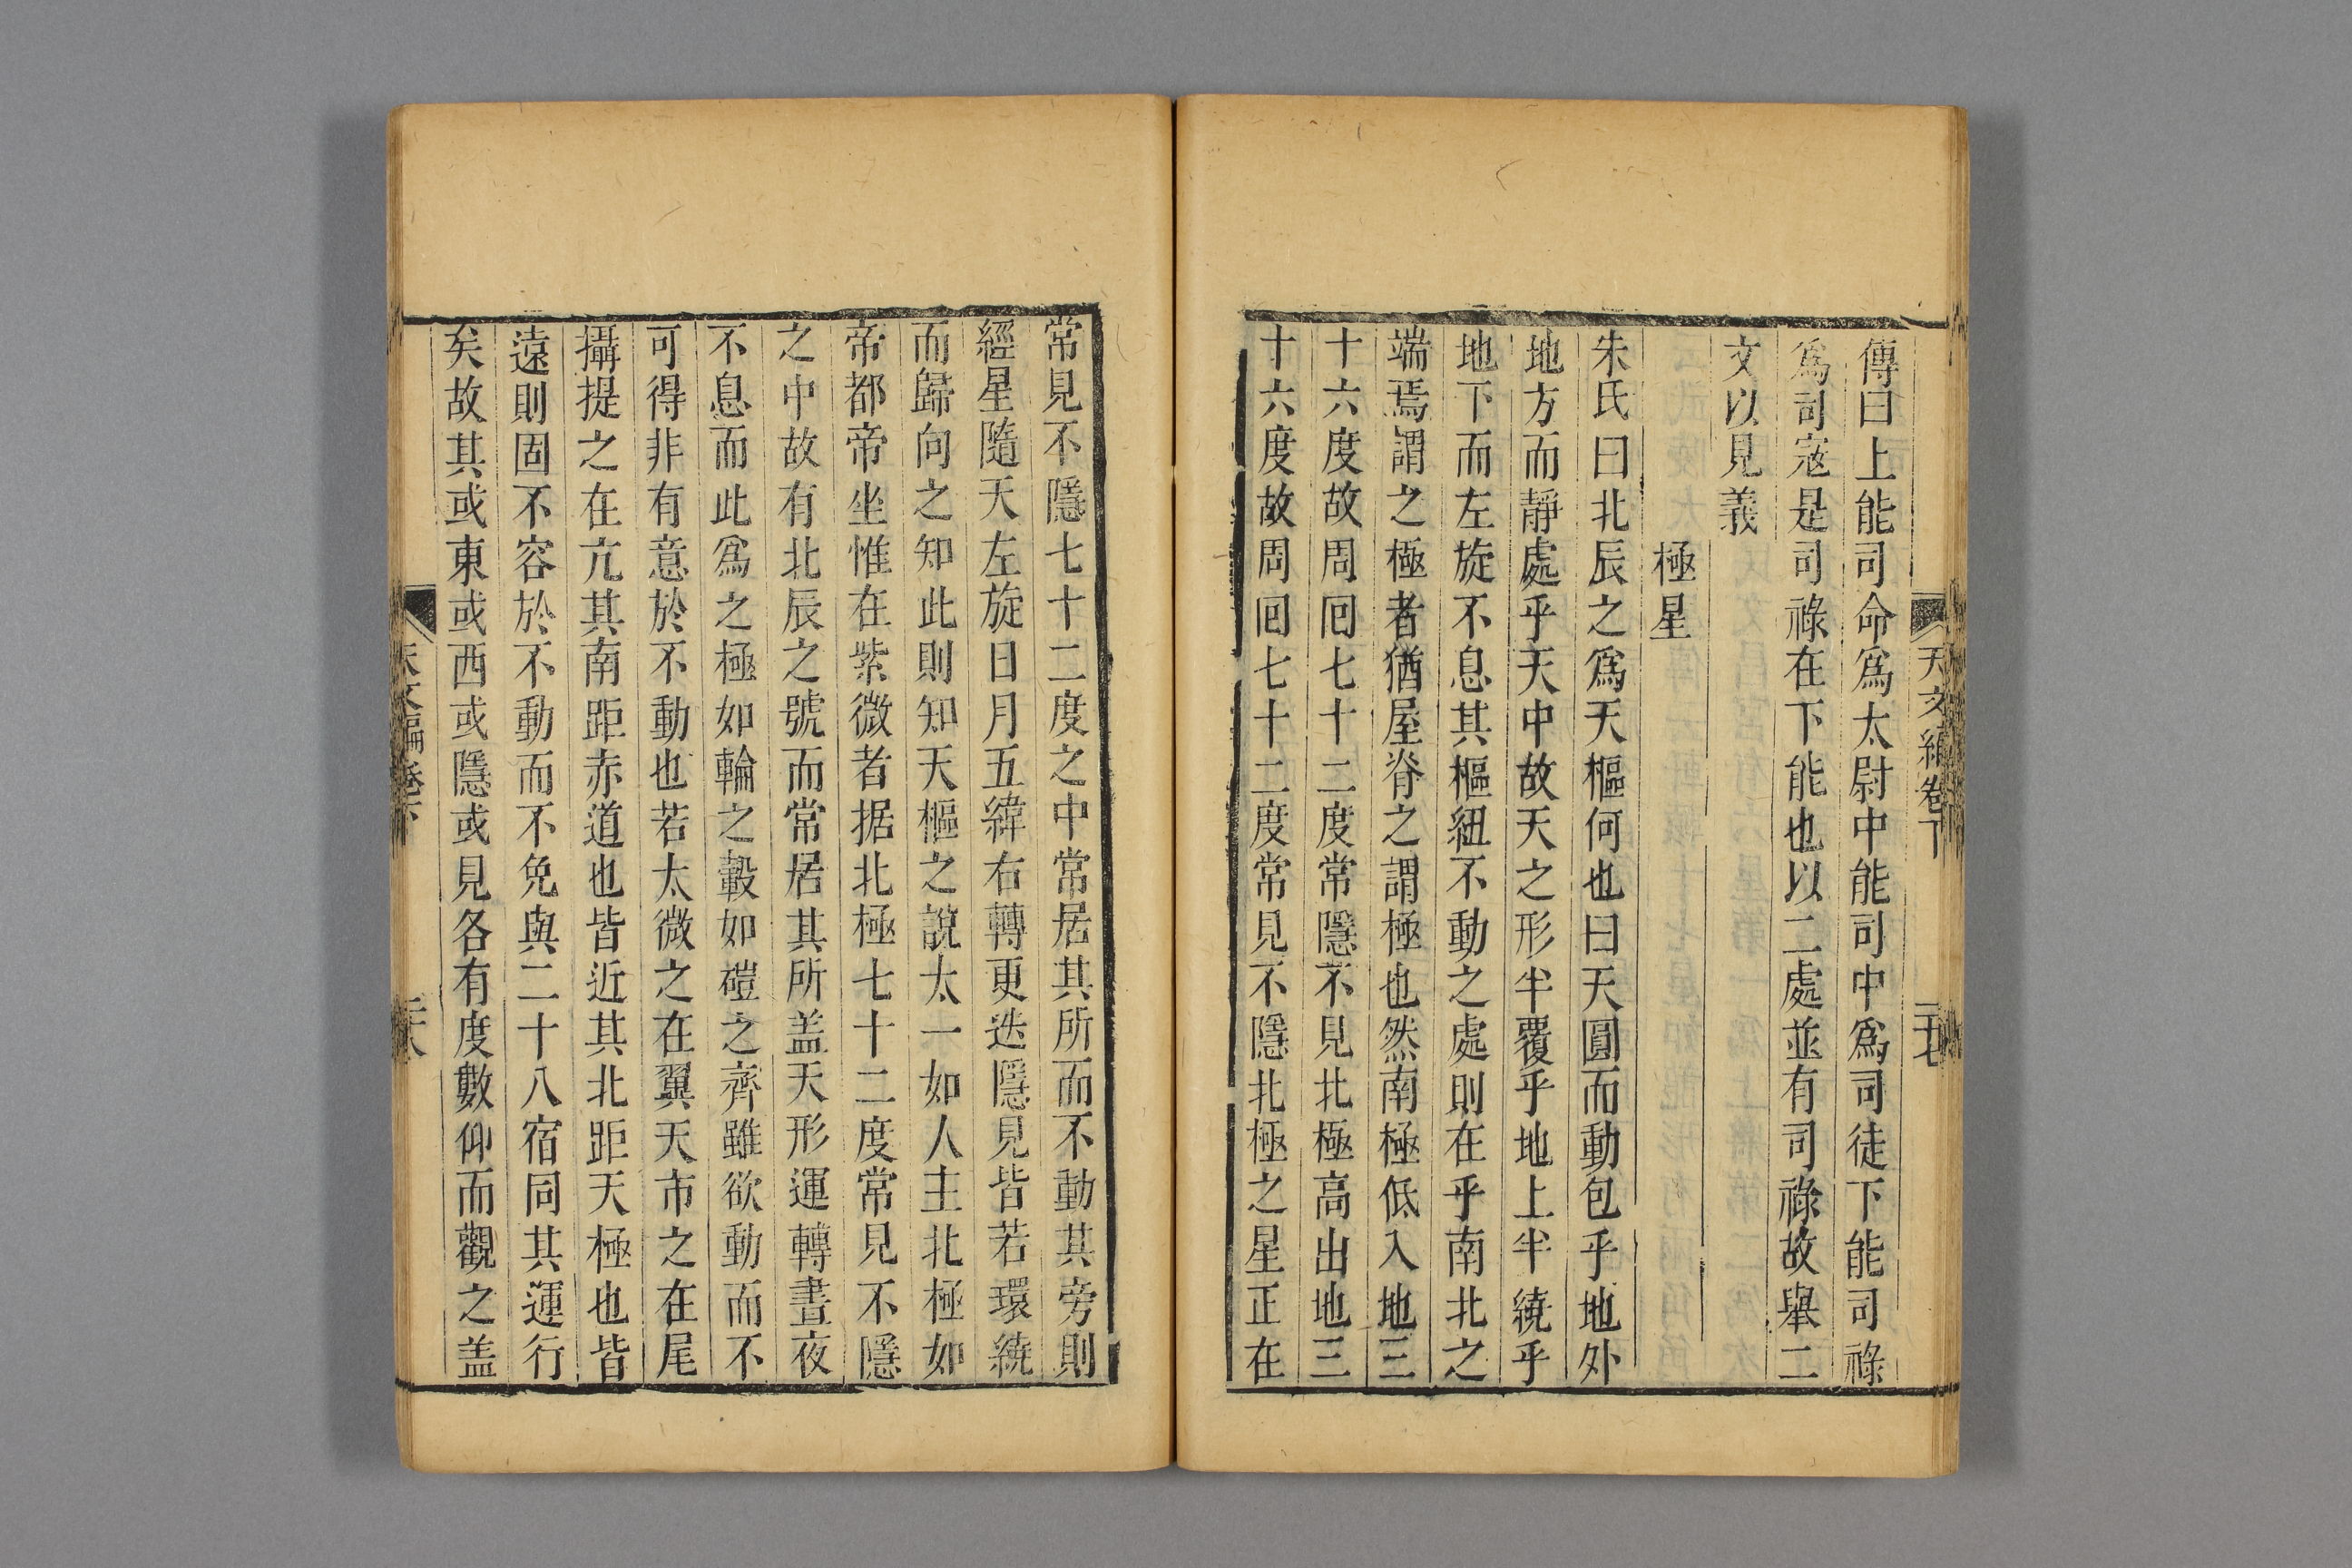 天文編卷下
二十七
傳曰上能司命爲太尉中能司中爲司徒下能司祿
爲司寇是司祿在下能也以二處並有司祿故舉二
文以見義
極星
朱氏曰北辰之爲天樞何也曰天圓而動包乎地外
地方而靜處乎天中故天之形半覆乎地上半繞乎
地下而左旋不息其樞紐不動之處則在乎南北之
端焉謂之極者猶屋脊之謂極也然南極低入地三
十六度故周回七十二度常隱不見北極高出地三
十六度故周回七十二度常見不隱北極之星正在
常見不隱七十二度之中常居其所而不動其旁則
經星隨天左旋日月五緯右轉更迭隱見皆若環繞
而歸向之知此則知天樞之說太一如人主北極如
帝都帝坐惟在紫微者据北極七十二度常見不隱
之中故有北辰之號而常居其所盖天形運轉晝夜
不息而此爲之極如輪之轂如磑之齊雖欲動而不
可得非有意於不動也若太微之在翼天市之在尾
攝提之在亢其南距赤道也皆近其北距天極也皆
遠則固不容於不動而不免與二十八宿同其運行
矣故其或東或西或隱或見各有度數仰而觀之盖
天文編卷下
二十八